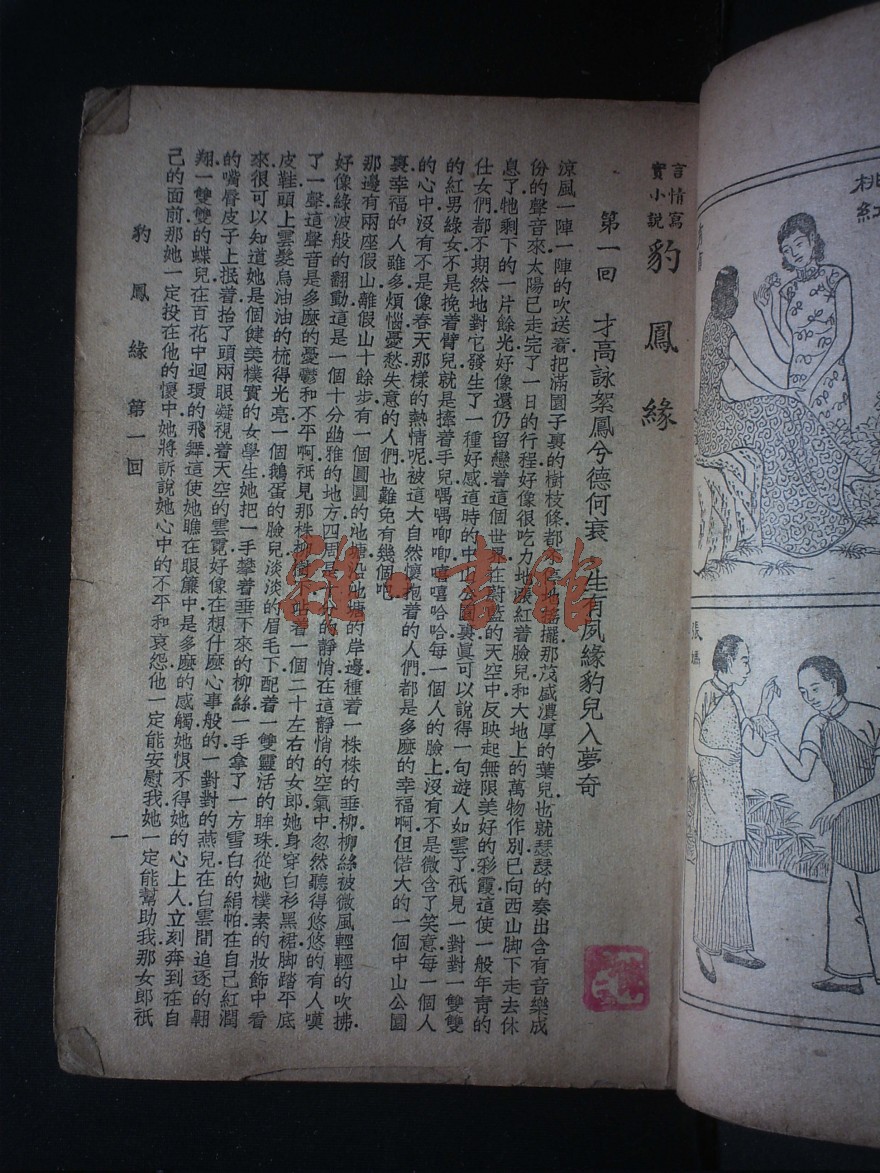 言情寫
實小說
豹鳳緣
第一回 才高詠絮鳳兮德何衰 生有夙緣豹兒入夢奇
涼風一陣一陣的吹送着把滿園子裏的樹枝條都地搖擺那茂盛濃厚的葉兒也就瑟瑟的奏出含有音樂成
份的聲音來太陽已走完了一日的行程好像很吃力地漲紅着臉兒和大地上的萬物作別已向西山脚下走去休
息了牠剩下的一片餘光好像還仍留戀着這個世界在蔚藍的天空中反映起無限美好的彩霞這使一般年青的
仕女們都不期然地對它發生了一種好感這時的中山公園裏眞可以說得一句遊人如雲了祇見一對對一雙雙
的紅男綠女不是挽着臂兒就是擕着手兒喁喁唧唧嘻嘻哈哈每一個人的臉上沒有不是微含了笑意每一個人
的心中沒有不是像春天那樣的熱情呢被這大自然懷抱着的人們都是多麽的幸福啊但偌大的一個中山公園
裏幸福的人雖多煩惱憂愁失意的人們也難免有幾個吧
那邊有兩座假山離假山十餘步有一個圓圓的池塘沿池塘的岸邊種着一株株的垂柳柳絲被微風輕輕的吹拂
好像綠波般的翻動這是一個十分幽雅的地方四周是十分的靜悄在這靜悄的空氣中忽然聽得悠悠的有人嘆
了一聲這聲音是多麽的憂鬱和不平啊祇見那株柳樹下站着一個二十左右的女郎她身穿白衫黑裙脚踏平底
皮鞋頭上雲髮烏油油的梳得光亮一個鵝蛋的臉兒淡淡的眉毛下配着一雙靈活的眸珠從她樸素的妝飾中看
來很可以知道她是個健美樸實的女學生她把一手攀着垂下來的柳絲一手拿了一方雪白的絹帕在自己紅潤
的嘴唇皮子上抿着抬了頭兩眼凝視着天空的雲霓好像在想什麽心事般的一對對的燕兒在白雲間追逐的翺
翔一雙雙的蝶兒在百花中迴環的飛舞這使她瞧在眼簾中是多麽的感觸她恨不得她的心上人立刻奔到在自
己的面前那她一定投在他的懷中她將訴說她心中的不平和哀怨他一定能安慰我她一定能幫助我那女郎祇
豹鳳緣 第一回
一
桃紅
張媽
雜·書館